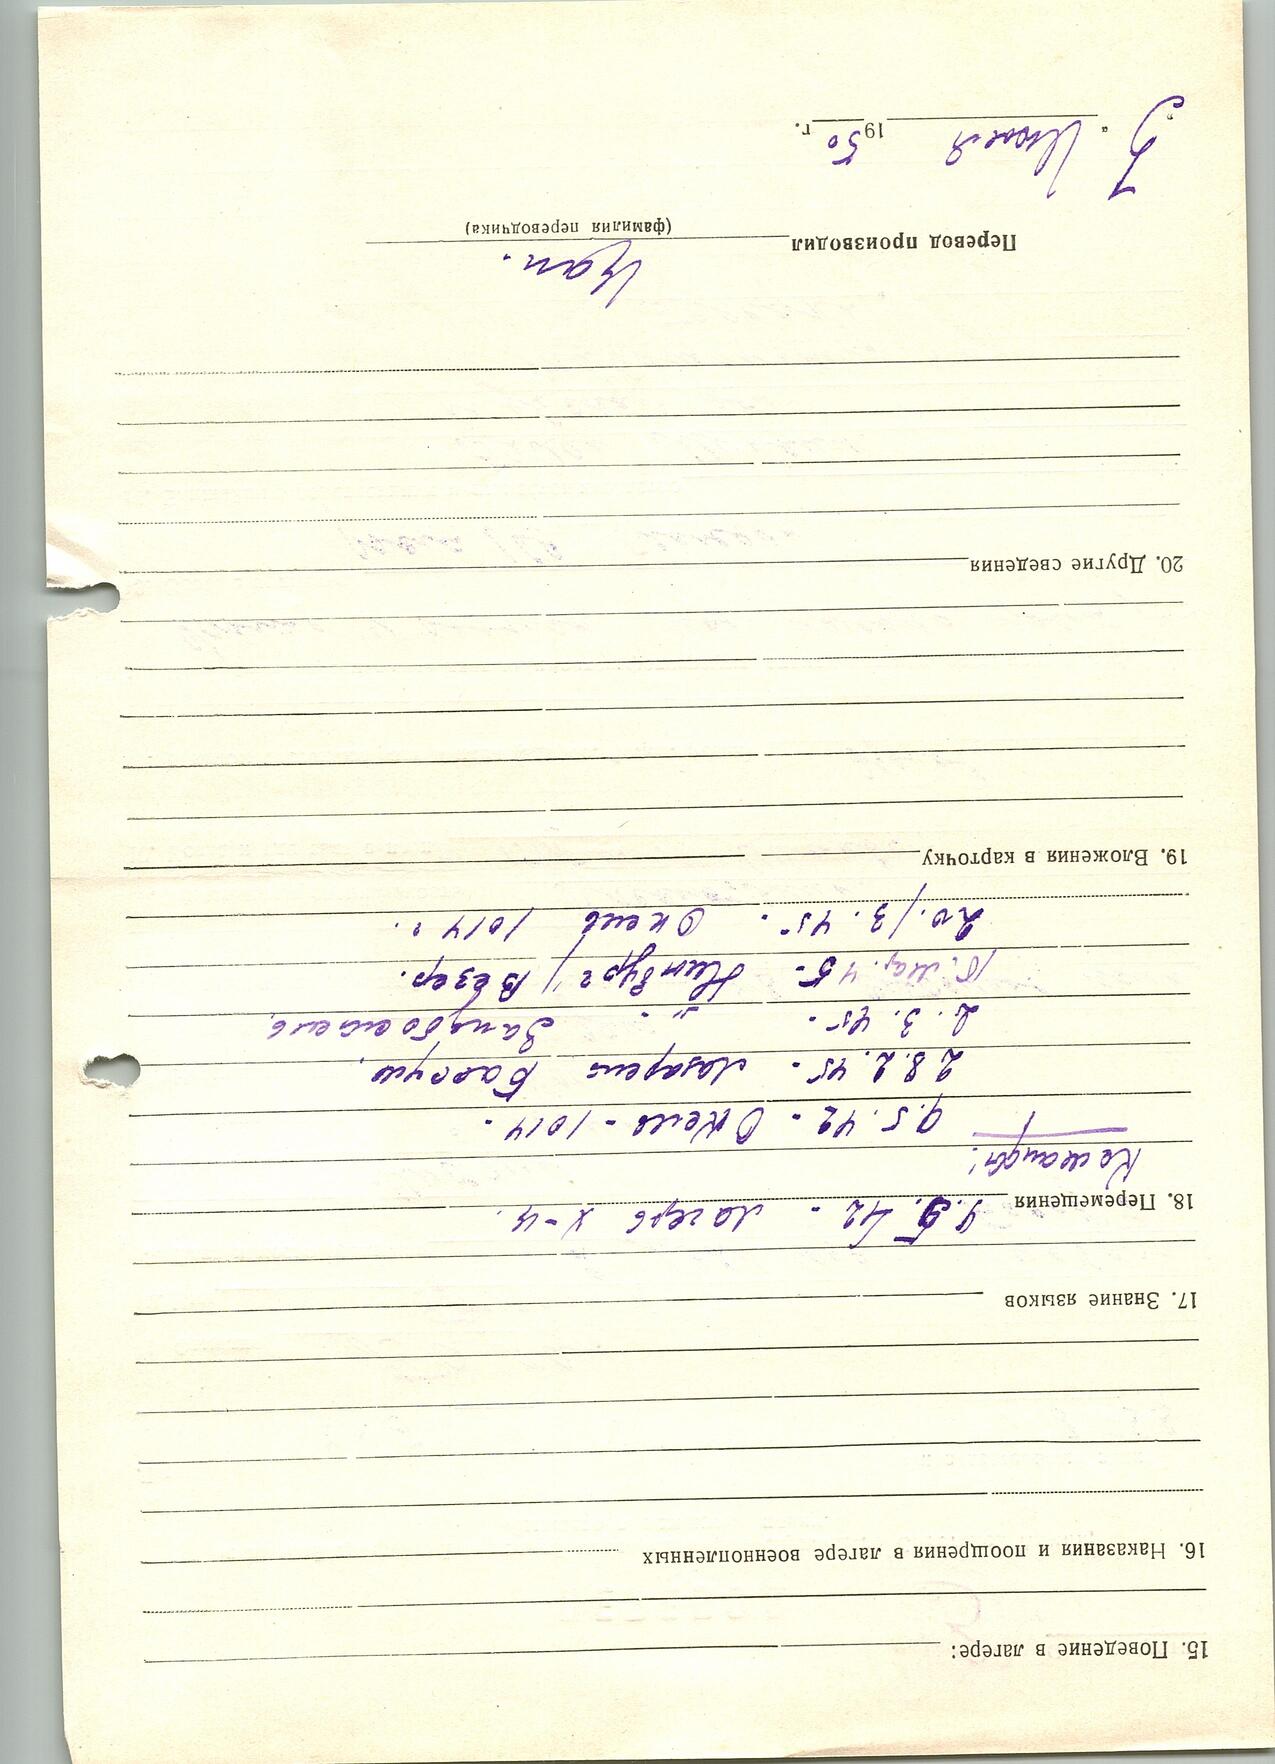 15. Поведение в лагере:
16. Наказания и поощрения в лагере военнопленных
17. Знание языков
18. Перемещения 9.5.42 - лагерь X-
Команды:
9.5.42 - Окель - 1014.
28.2.45 - лазарет Бассум,
2.3.45 - " - Зандбостель
45 - Нинбург/Везер.
20./3.45. Окель 1014.
19. Вложения в карточку
20. Другие сведения
Перевод производил
(фамилия переводчика)
" 3 " Июля 1950 г.